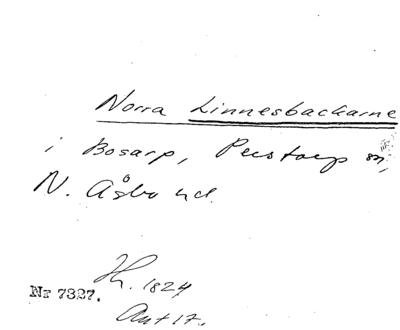 Norra Linnesbackarne
i Bosarp, Perstorp sn,
N. Åsbo hd.
1824
Nr 7327.
Ant 17.